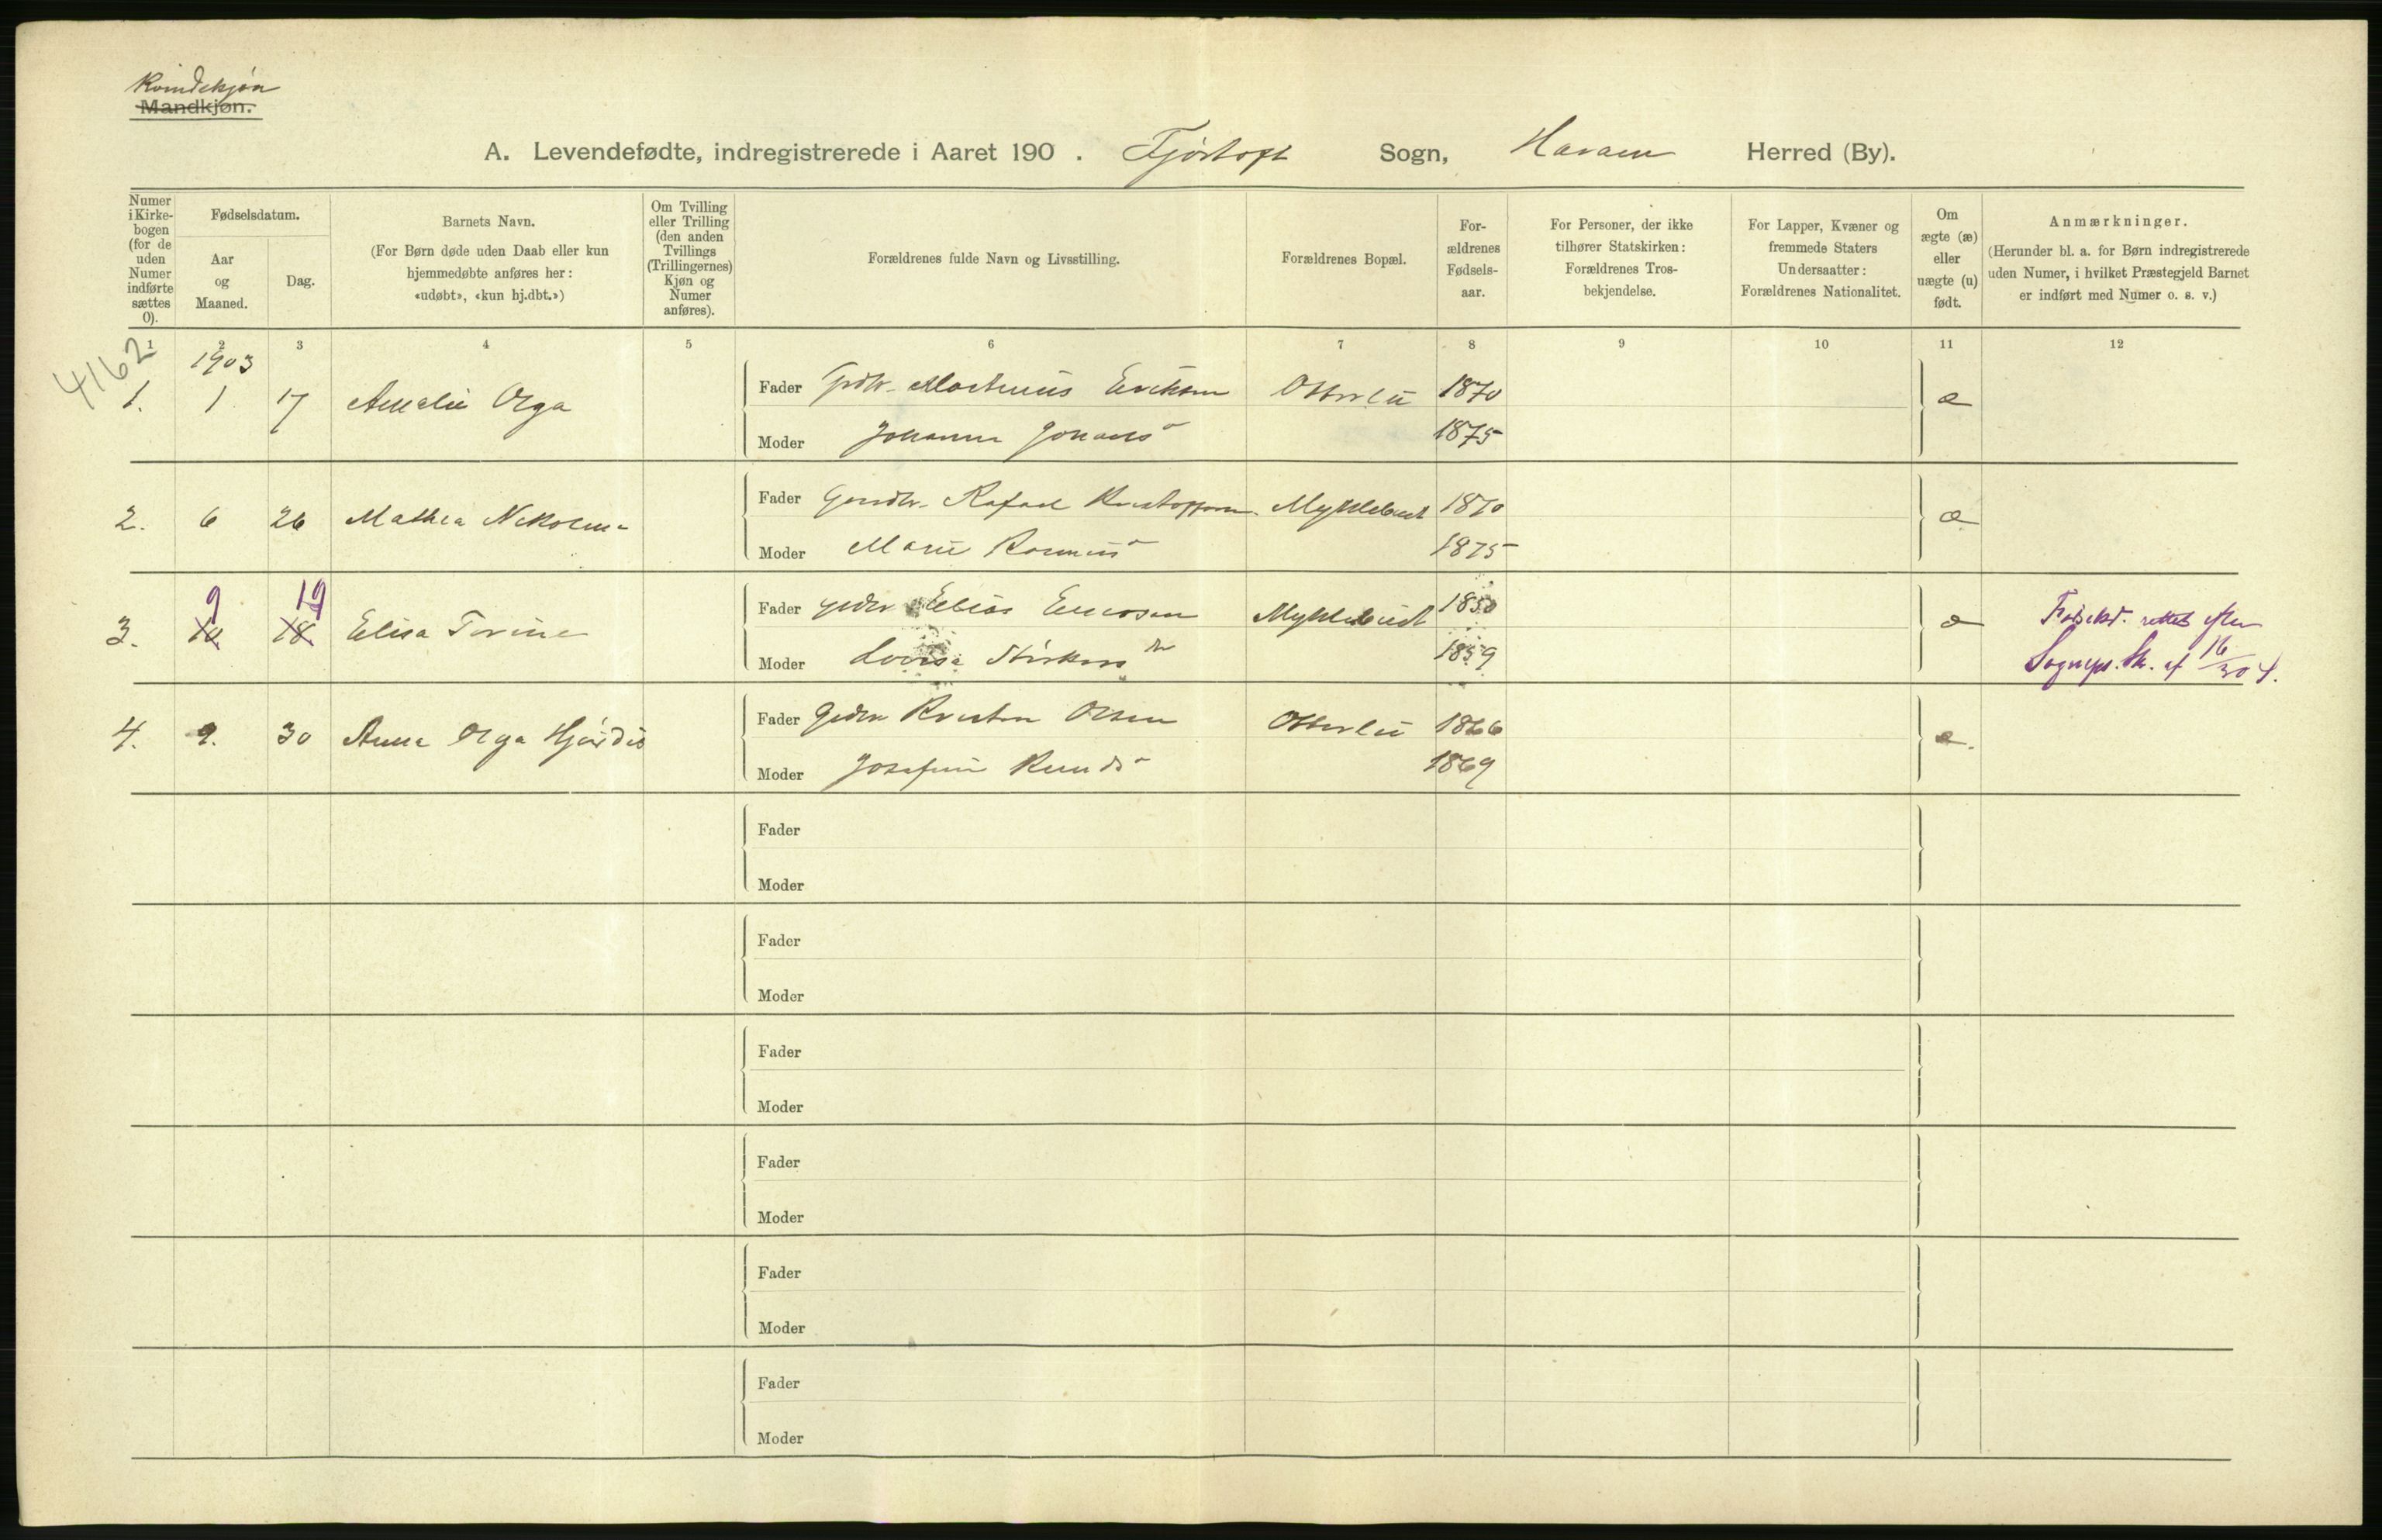 Kvindekjøn
Mandkjøn.
A. Levendefødte, indregistrerede i Aaret 190 . Fjørtoft Sogn, Haram Herred (By).
Numer i Kirkebogen (for de uden Numer indførte sættes 0).
Fødselsdatum.
Aar og Maaned.
Dag.
Barnets Navn.
(For Børn døde uden Daab eller kun hjemmedøbte anføres her: «udøbt», «kun hj.dbt.»)
Om Tvilling eller Trilling (den anden Tvillings (Trillingernes) Kjøn og Numer anføres).
Forældrenes fulde Navn og Livsstilling.
Forældrenes Bopæl.
Forældrenes Fødselsaar.
For Personer, der ikke tilhører Statskirken: Forældrenes Trosbekjendelse.
For Lapper, Kvæner og fremmede Staters Undersaatter: Forældrenes Nationalitet.
Om ægte (æ) eller uægte (u) født.
Anmærkninger.
(Herunder bl. a. for Børn indregistrerede uden Numer, i hvilket Præstegjeld Barnet er indført med Numer o. s. v.)
1 2 3 4 5 6 7 8 9 10 11 12
4162
1903
1. 1 17 Amalie Olga Fader Martinus Eriksen Otterlei 1870 æ
Moder Johanna Johans 1875
2. 6 26 Mathea Nikoline Fader Rafael Kristoffersen Myklebust 1870 æ
Moder Marie Rasmus 1875
9 19
3. 10 18 Elisa Torine Fader Elias Enersen Myklebust 1850 æ Fødselsd. rettet efter
Moder Lovise 1859 Sognepr. Skr. af 16/3 04.
4. 9. 30 Anna Olga Hjørdis Fader Kristen Olsen Otterlei 1866 æ.
Moder Josefine Knuds 1869
Fader
Moder
Fader
Moder
Fader
Moder
Fader
Moder
Fader
Moder
Fader
Moder